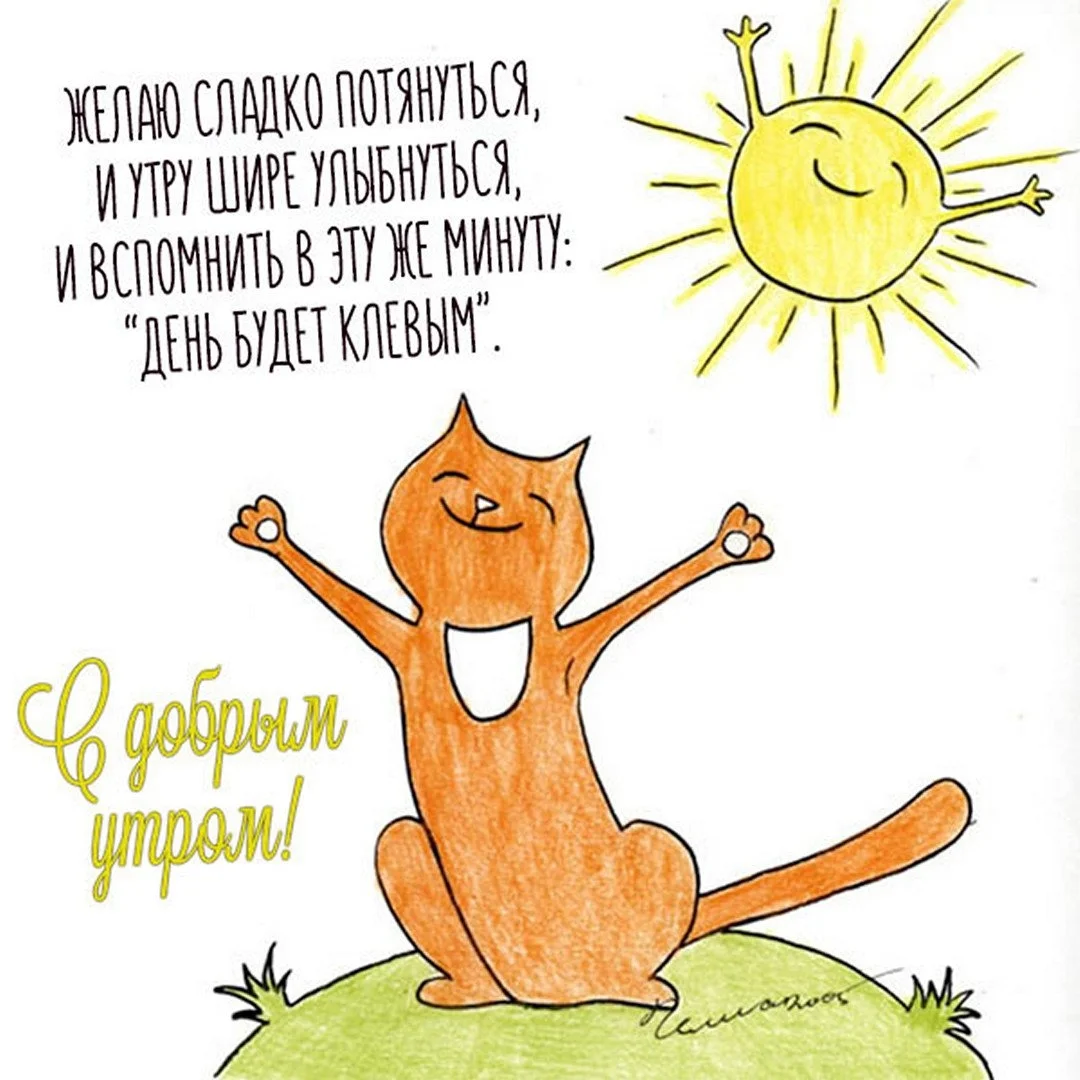 ЖЕЛАЮ СЛАДКО ПОТЯНУТЬСЯ,
И УТРУ ШИРЕ УЛЫБНУТЬСЯ,
И ВСПОМНИТЬ В ЭТУ ЖЕ МИНУТУ:
“ДЕНЬ БУДЕТ КЛЕВЫМ”.
С добрым
утром!